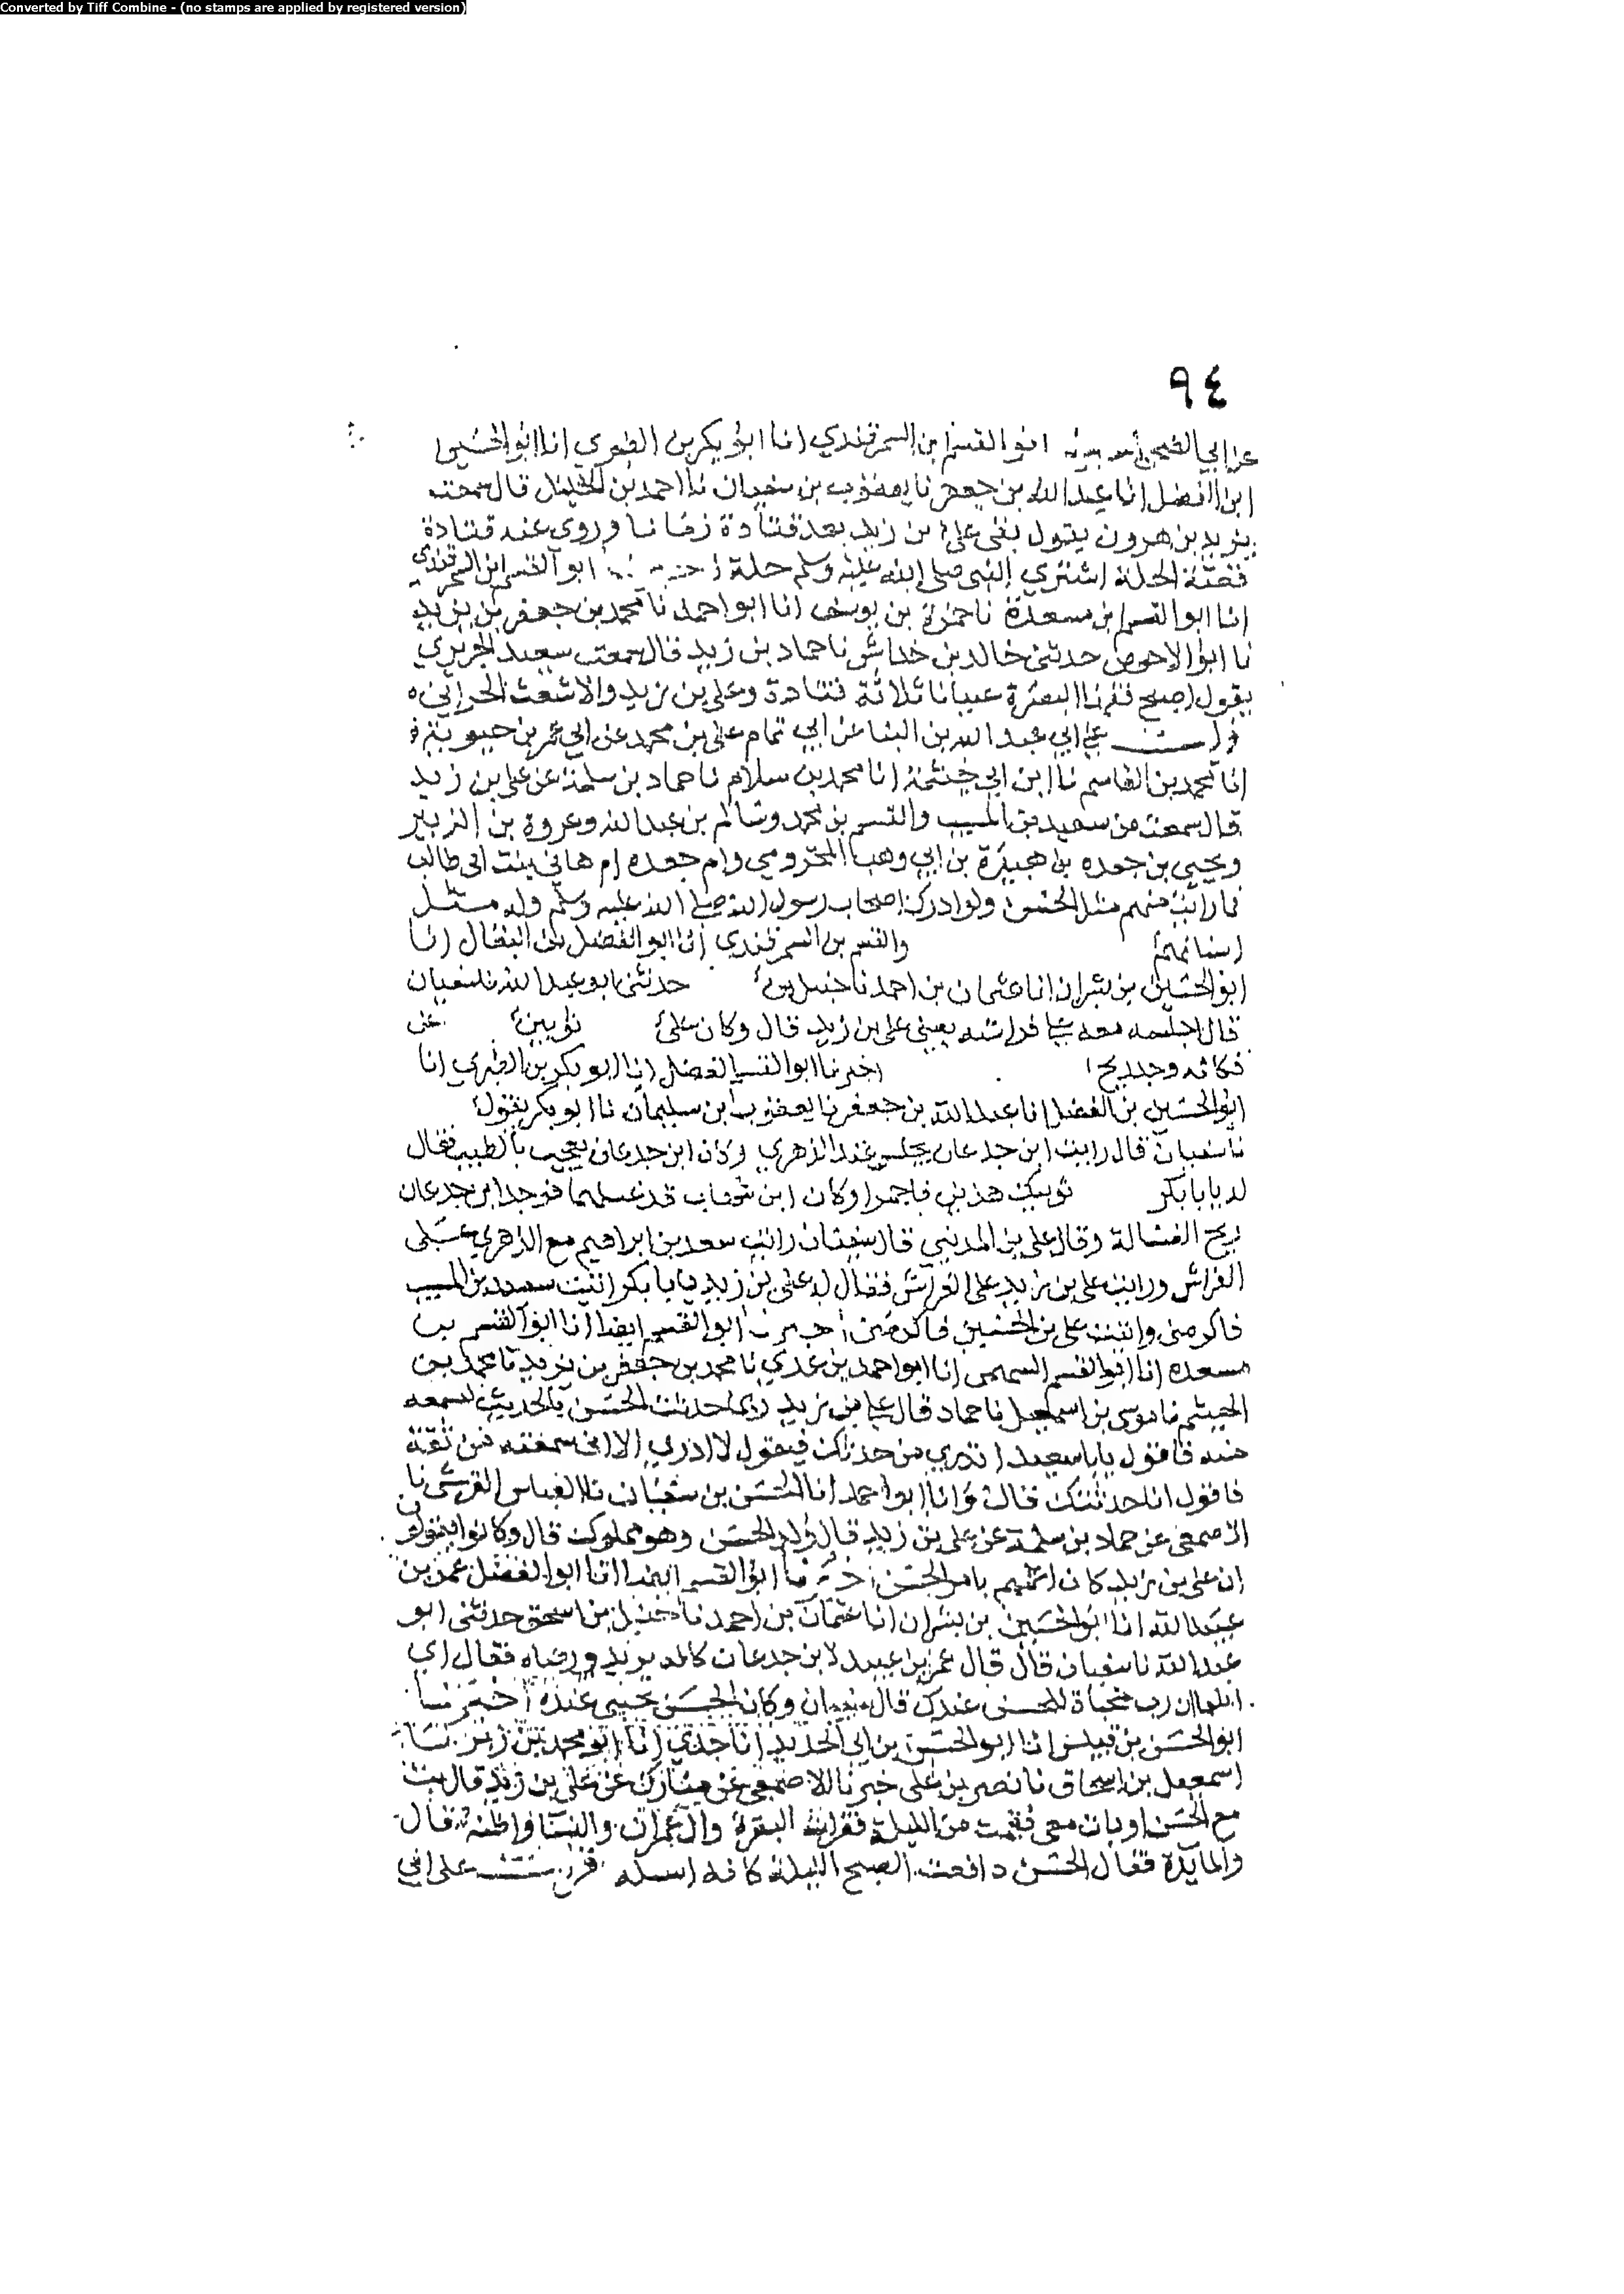 Converted by Tiff Combine - (no stamps are applied by registered version)
٩٤
ابو القسم ابن السمرقندي انا ابو بكر بن الطبري انا ابو الحسين
ابن الفضل انا عبد الله بن جعفر نا يعقوب بن سفيان نا احمد بن الخليل قال سمعت
يزيد بن هرون يقول بقى على بن زيد بعد قتادة زمانا وروى عنه قتادة
قصة الحلة اشترى النبي صلى الله عليه وسلم حلة ابو القسم ابن السمرقندى
انا ابو القسم بن مسعدة نا حمزة بن يوسف انا ابو احمد نا محمد بن جعفر بن يزيد
نا ابو الاحوص حدثنى خالد بن خداش نا حماد بن زيد قال سمعت سعيد الجريري
يقول اصبح فقهاا البصرة عميانا ثلاثة قتادة وعلى بن زيد والاشعث الحدانى ه
على ابي عبد الله بن البنا عن ابي تمام على بن محمد عن ابي عمر بن حيويه
انا محمد بن القاسم نا ابن ابي خيثمة انا محمد بن سلام نا حماد بن سلمة عن على بن زيد
قال سمعت من سعيد بن المسيب والقسم بن محمد وسالم بن عبد الله وعروة بن الزبير
ويحيى بن جعده بن هبيرة بن ابي وهب المخزومي وام جعده ام هاني بنت ابى طالب
فما رايت منهم مثل الحسن ولو ادرك اصحاب رسول الله صلى الله عليه وسلم وله مثل
اسنانهم والقسم بن السمرقندي انا ابو الفضل بن البقال انا
ابو الحسين بن بشران انا عثمان بن احمد نا حنبل بن حدثنى ابو عبد الله نا سفيان
قال اجلسه معه على فراشه يعنى على بن زيد قال وكان على ثوبين عن
فكانه وجد ريح اخبرنا ابو القسم الفضل انا ابو بكر بن الطبري انا
ابو الحسين بن الفضل انا عبد الله بن جعفر نا يعقوب ابن سليمان نا ابو بكر يقول
نا سفيان قال رايت ابن جدعان يجلس عند الزهري وكان ابن جدعان يعجب بالطيب فقال
له يابا بكر ثوبيك هذين فاجمرا وكان ابن شهاب قد غسلهما فوجد ابن جدعان
ريح الغسالة وقال على بن المديني قال سفيان رايت سعد بن ابراهيم مع الزهري على
الفراش ورايت على بن زيد على الفراش فقال له على بن زيد يابا بكر اتيت سعيد بن المسيب
فاكرمنى واتيت على بن الحسين فاكرمنى ابو القسم ايضا انا ابو القسم بن
مسعده انا ابو القسم السهمى انا ابو احمد بن عدي نا محمد بن جعفر بن يزيد نا محمد بن
الهيثم نا موسى بن اسمعيل نا حماد قال على بن زيد ربما حدثت الحسن بالحديث اسمعه
منه فاقول يابا سعيد اتدري من حدثك فيقول لا ادري الا انى سمعته من ثقة
فاقول انا حدثتك قال وانا ابو احمد انا الحسن بن سفيان نا العباس القرشى نا
الاصمعى عن حماد بن سلمة عن على بن زيد قال ولد الحسن وهو مملوك قال وكانوا يقولون
ان على بن زيد كان اعلمهم بامر الحسن ابو القسم ايضا انا ابو الفضل عمر بن
عبيد الله انا ابو الحسين بن بشران انا عثمان بن احمد نا حنبل بن اسحق حدثنى ابو
عبد الله نا سفيان قال قال عمر بن عبيد لابن جدعان كانه يريد ورضاه فقال اي
رب مخباة للحسن عندك قال سفيان وكان الحسن يختبى عنده اخبرنا
ابو الحسن بن قبيس انا ابو الحسن بن ابي الحديد انا جدي انا ابو محمد بن زبر نا
اسمعيل بن اسحاق نا نصر بن على خبرنا الاصمعى عن مبارك عن على بن زيد قال بت
مع الحسن او بات معى فقمت من الليلة فقرات البقرة وآل عمران والنسا واظنه قال
والمايدة فقال الحسن دافعت الصبح الليلة كافه على ابي